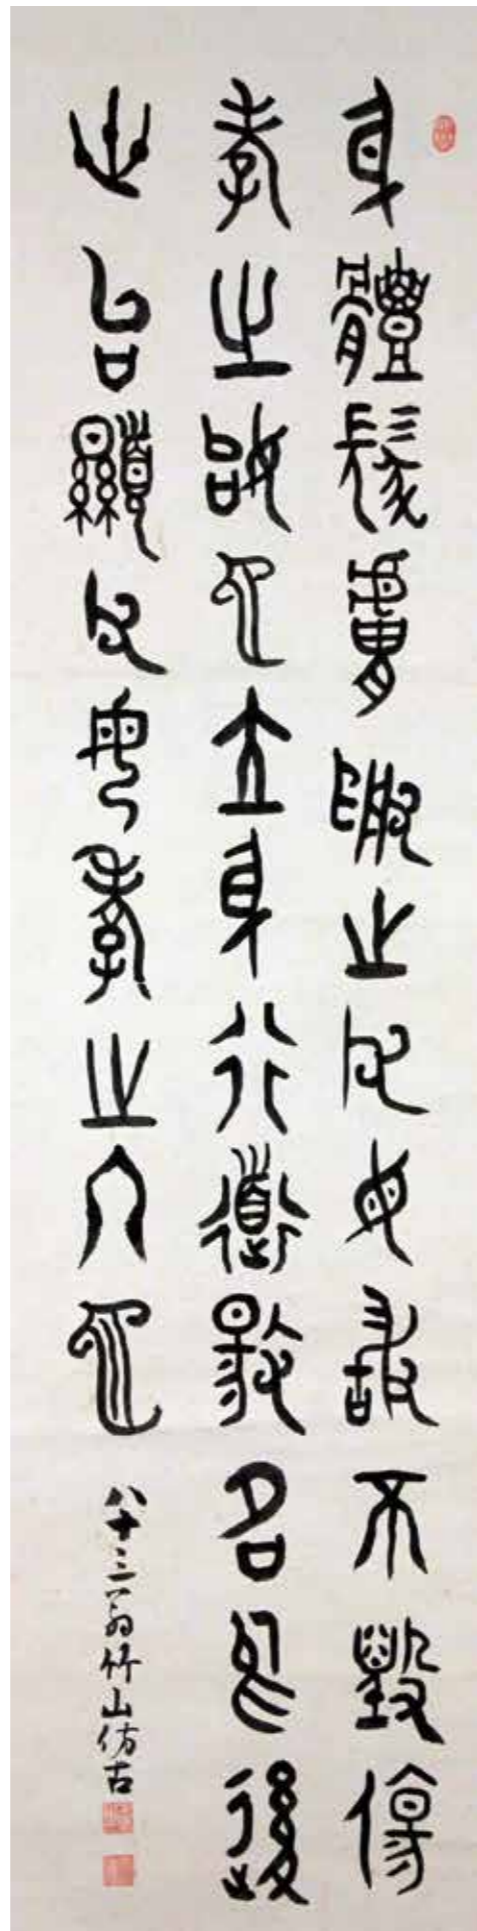 身體髮膚受之父母敢不毀傷
孝之始也立身行道揚名於後
世以顯父母孝之終也
八十三翁竹山仿古